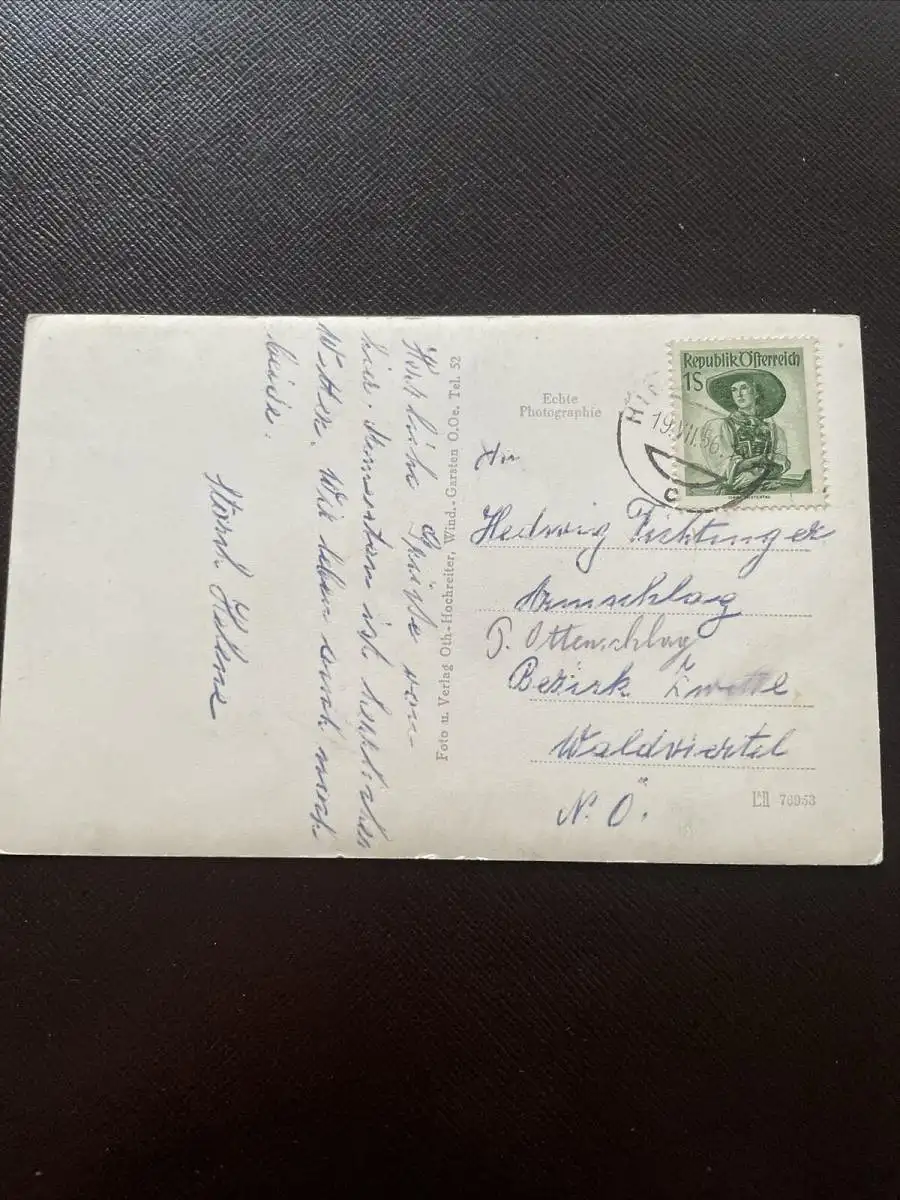 Herzliche Grüße von
hier. Momentan ist herrliches
Wetter. Wir leben auch noch
beide.
Helene
Foto u. Verlag Oth-Hochreiter, Wind.-Garsten O.Oe. Tel. 52
Echte
Photographie
Republik Österreich
1S
19.VII.56.
c
An
Hedwig Fichtinger
Armschlag
P. Ottenschlag
Bezirk Zwettl
Waldviertel
N. Ö.
76953